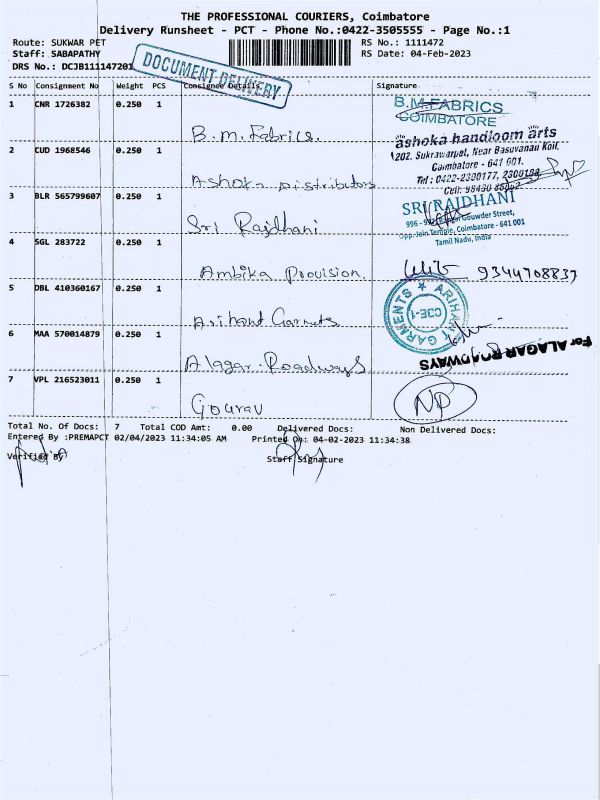 THE PROFESSIONAL COURIERS, Coimbatore
Delivery Runsheet - PCT - Phone No.:0422-3505555 - Page No.:1
Route: SUKWAR PET
RS No.: 1111472
Staff: SABAPATHY
RS Date: 04-Feb-2023
DRS No.: DCJB111147201
DOCUMENT DELIVERY
S No Consignment No Weight PCS Consignee Details Signature
1 CNR 1726382 0.250 1
B.M. Fabrics.
B.M.FABRICS
COIMBATORE
2 CUD 1968546 0.250 1
Ashoka Distributors
ashoka handloom arts
202, Sukrawarpet, Near Basuvanan Koil,
Coimbatore - 641 001.
Tel : 0422-2300177,
Cell: 98430
3 BLR 565799607 0.250 1
Sri Rajdhani
SRI RAJDHANI
Gouwder Street,
Opp. Join Temple, Coimbatore - 641 001
Tamil Nadu, India
4 SGL 283722 0.250 1
Ambika Provision.
9344708837
5 DBL 410360167 0.250 1
Arihant Garments
ARIHANT GARMENTS
CBE-1
6 MAA 570014879 0.250 1
Alagar Roadways
For ALAGAR ROADWAYS
7 VPL 216523011 0.250 1
Gourav
NP
Total No. Of Docs: 7 Total COD Amt: 0.00 Delivered Docs: Non Delivered Docs:
Entered By :PREMAPCT 02/04/2023 11:34:05 AM Printed On: 04-02-2023 11:34:38
Verified By
Staff Signature